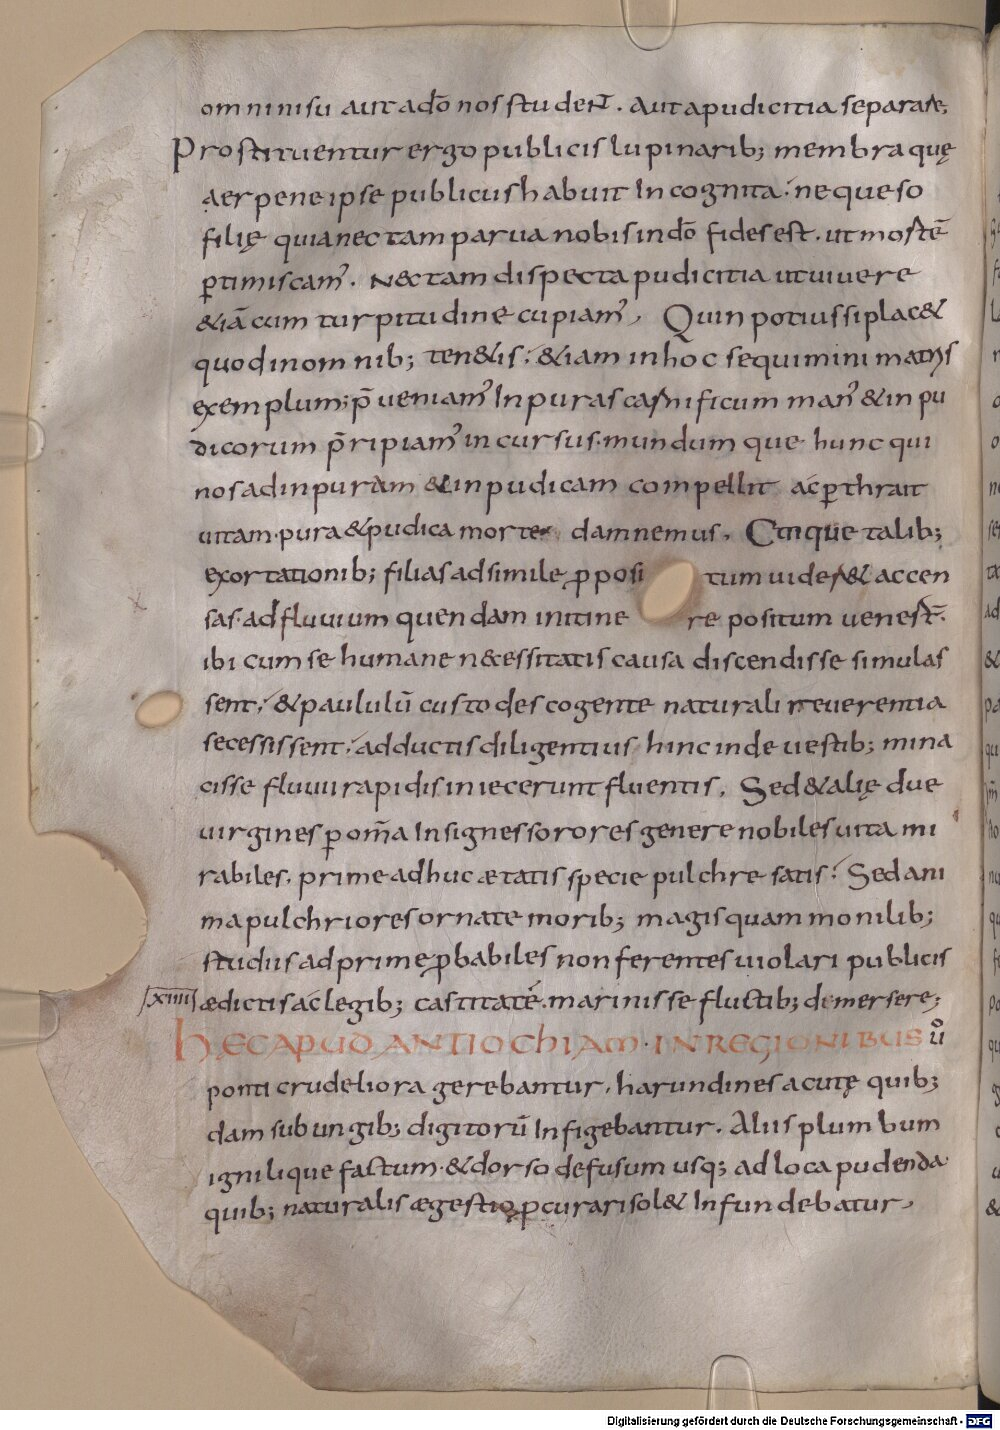 omni nisu aut a dō nos studeN̄. aut a pudicitia separare;
Prostituentur ergo publicis lupinarib; membra quę
aer pene ipse publicus habuit Incognita. neque so
filię quia nec tam parua nobis in dō fides est. ut mortē
ptimiscam'. Nec tam dispecta pudicitia ut uiuere
&iā cum turpitudine cupiam', Quin potius si plac&
quod in omnib; ten&is, &iam in hoc sequimini matris
exemplum; p̄ueniam' Inpuras carnificum man' & inpu
dicorum p̄ripiam' incursus. mundumque hunc qui
nos ad inpuram & inpudicam compellit ac pthrait
uitam. pura & pudica morte damnemus, Cunque talib;
exortationib; filias ad simile pposi tum uider& accen
sas. ad fluuium quendam initine re positum uenest̄.
ibi cum se humane necessitatis causa discendisse simulas
sent, & paululū custodes cogente naturali reuerentia
secessissent, adductis diligentius hinc inde uestib; mina
cisse fluuii rapidis iniecerunt fluentis, Sed & alię due
uirgines p om̄a Insignes sorores genere nobiles uita mi
rabiles. prime adhuc ætatis specie pulchre satis. Sed ani
ma pulchriores ornate morib; magis quam monilib;
studiis adprime pbabiles non ferentes uiolari publicis
XIIII ædictis ac legib; castitatē. marinis se fluctib; demersere;
HÆC APUD ANTIOCHIAM. IN REGIONIBUS ūo
ponti crudeliora gerebantur, harundines acutę quib;
dam sub ungib; digitorū Infigebantur. Aliis plumbum
igni lique factum. & dorso defusum usq; ad loca pudenda.
quib; naturalis ægestio pcurari sol& Infundebatur,
Digitalisierung gefördert durch die Deutsche Forschungsgemeinschaft - DFG